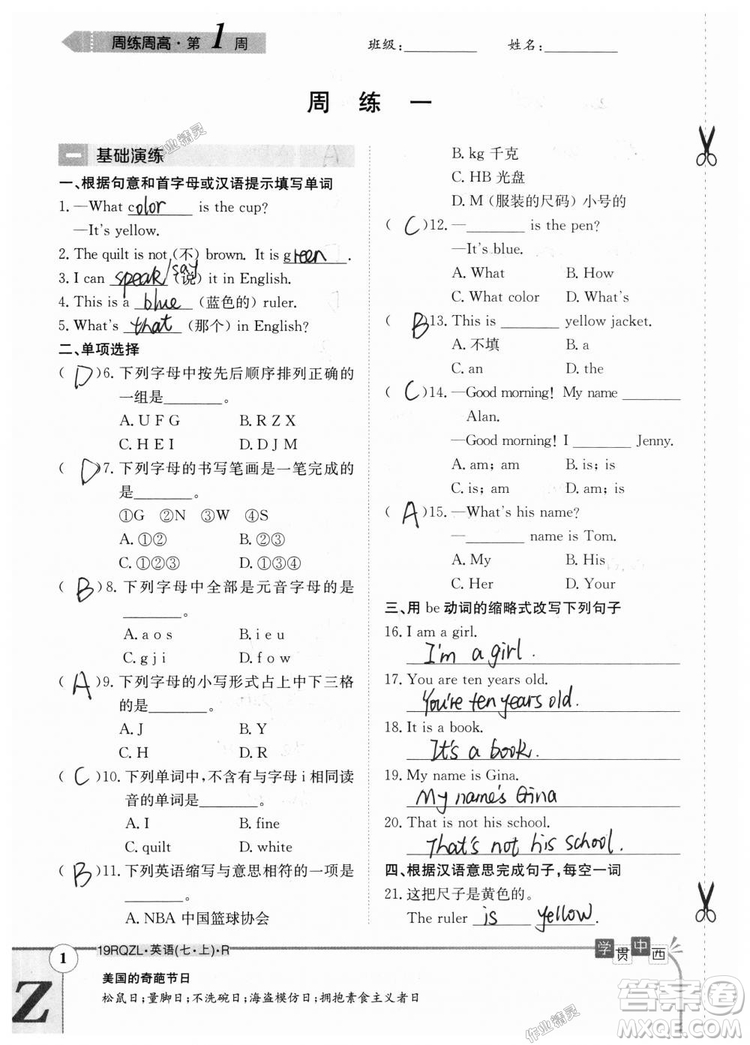 周练周高·第1周
班级:________ 姓名:________
周 练 一
一 基础演练
一、根据句意和首字母或汉语提示填写单词
1. —What color is the cup?
—It's yellow.
2. The quilt is not (不) brown. It is green.
3. I can speak/say (说) it in English.
4. This is a blue (蓝色的) ruler.
5. What's that (那个) in English?
二、单项选择
( D )6. 下列字母中按先后顺序排列正确的
一组是________。
A. U F G B. R Z X
C. H E I D. D J M
( D )7. 下列字母的书写笔画是一笔完成的
是________。
①G ②N ③W ④S
A. ①② B. ②③
C. ①②③ D. ①②③④
( B )8. 下列字母中全部是元音字母的是
________。
A. a o s B. i e u
C. g j i D. f o w
( A )9. 下列字母的小写形式占上中下三格
的是________。
A. J B. Y
C. H D. R
( C )10. 下列单词中,不含有与字母 i 相同读
音的单词是________。
A. I B. fine
C. quilt D. white
( B )11. 下列英语缩写与意思相符的一项是
________。
A. NBA 中国篮球协会
B. kg 千克
C. HB 光盘
D. M (服装的尺码) 小号的
( C )12. —________ is the pen?
—It's blue.
A. What B. How
C. What color D. What's
( B )13. This is ________ yellow jacket.
A. 不填 B. a
C. an D. the
( C )14. —Good morning! My name ________
Alan.
—Good morning! I ________ Jenny.
A. am; am B. am; is
C. is; am D. is; is
( A )15. —What's his name?
—________ name is Tom.
A. My B. His
C. Her D. Your
三、用 be 动词的缩略式改写下列句子
16. I am a girl.
I'm a girl.
17. You are ten years old.
You're ten years old.
18. It is a book.
It's a book.
19. My name is Gina.
My name's Gina
20. That is not his school.
That's not his school.
四、根据汉语意思完成句子,每空一词
21. 这把尺子是黄色的。
The ruler is yellow.
1 19RQZL·英语(七·上)·R
学贯中西
美国的奇葩节日
松鼠日;量脚日;不洗碗日;海盗模仿日;拥抱素食主义者日
Z
作业精灵
作业精灵
答案圈
MXQE.COM